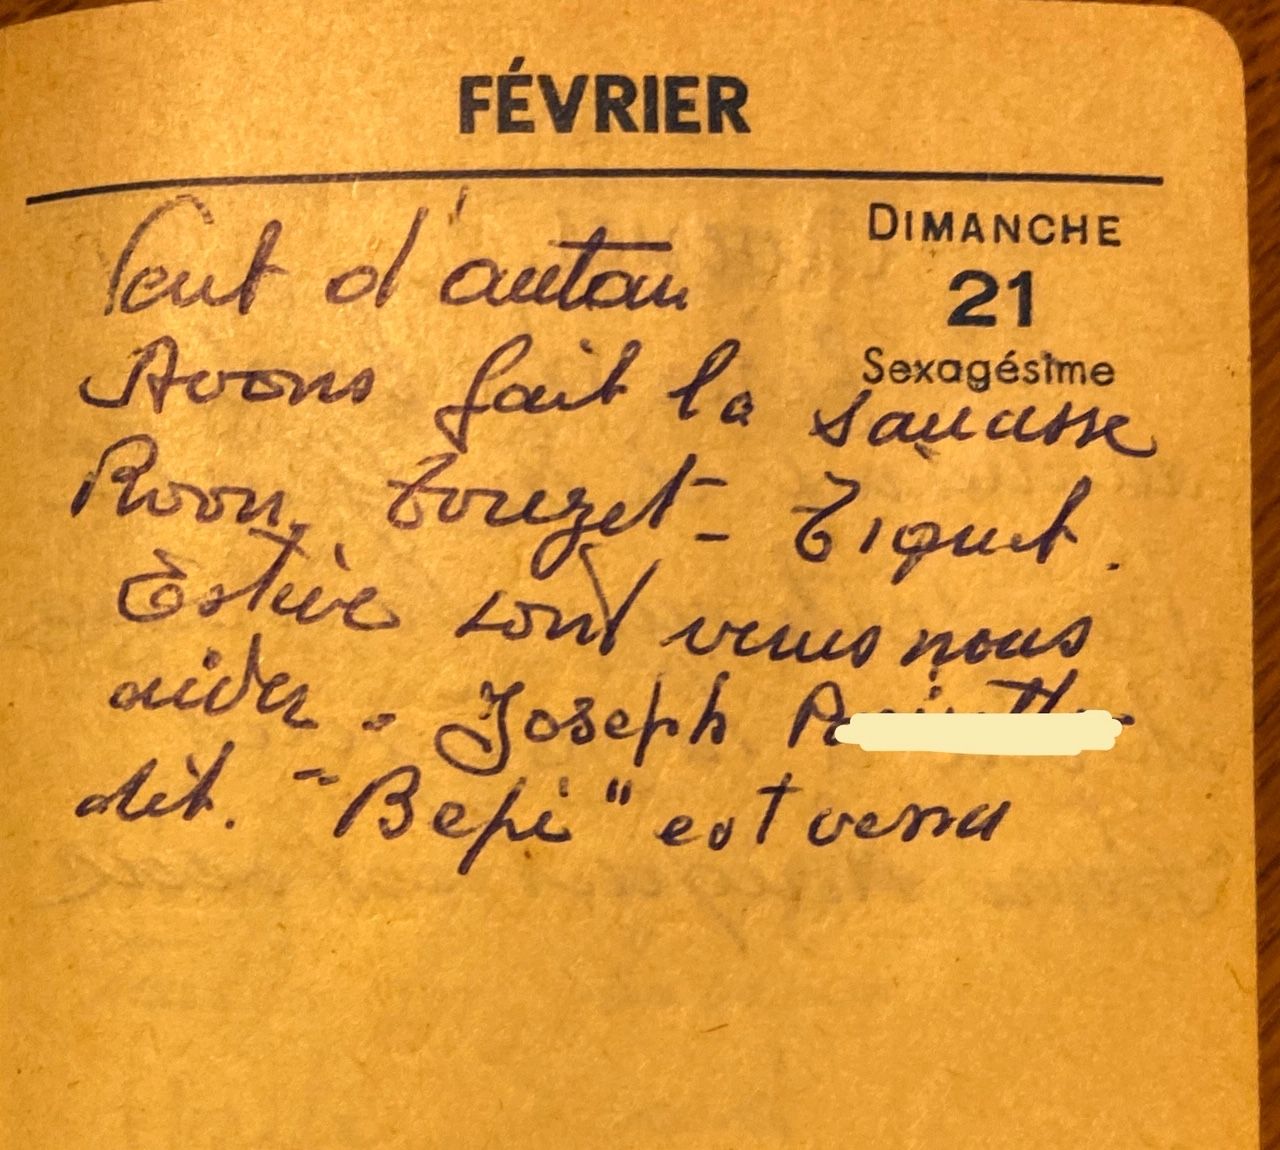 FÉVRIER
DIMANCHE
21
Sexagésime
Vent d'autan
Avons fait la saucisse
Roon, Touzet - Tiquet.
Estève sont venus nous
aider - Joseph
dit. "Bepi" est venu